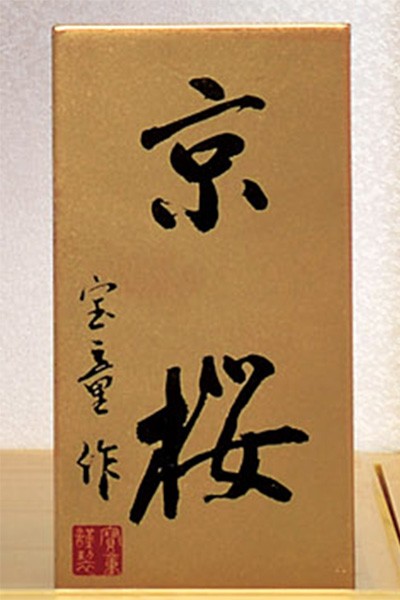 京桜
宝童作